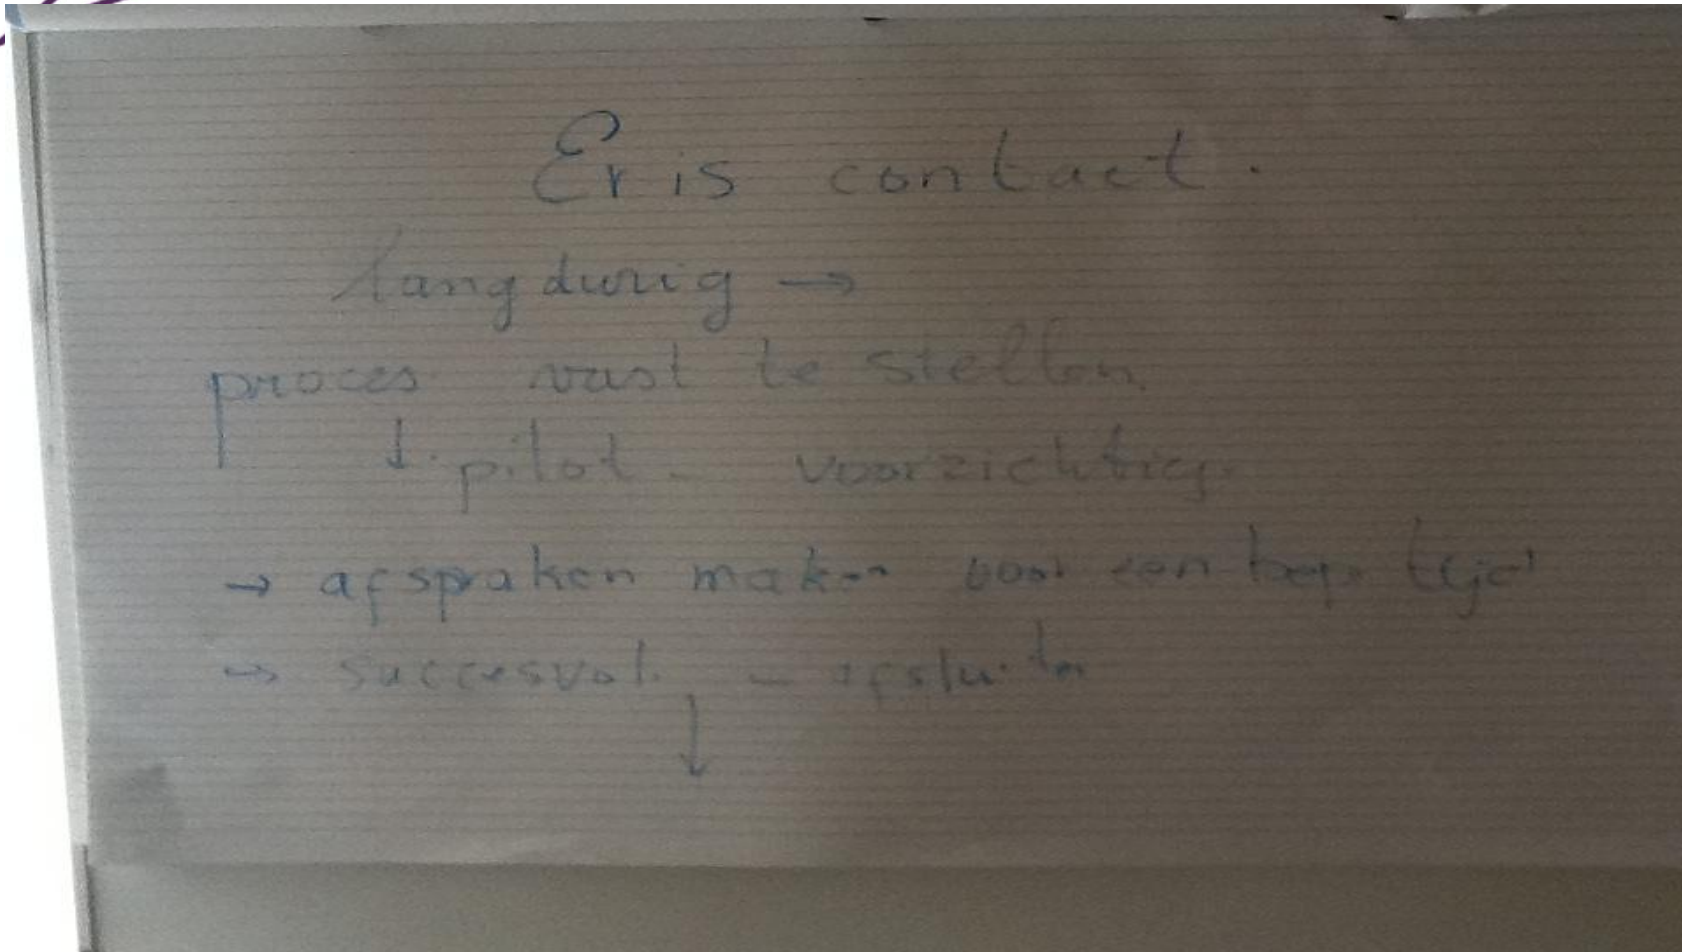 Er is contact.
langdurig →
proces vast te stellen
↓ pilot - voorzichtig.
→ afspraken maken voor een bep. tijd
→ succesvol. - afsluiten
↓